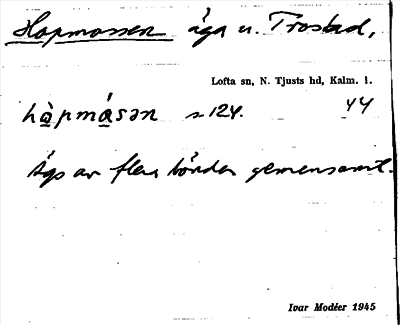 Hopmossen äga u. Trostad,
Lofta sn, N. Tjusts hd, Kalm. l.
hòpmósən s 124. 44
Ägs av flera bönder gemensamt.
Ivar Modéer 1945